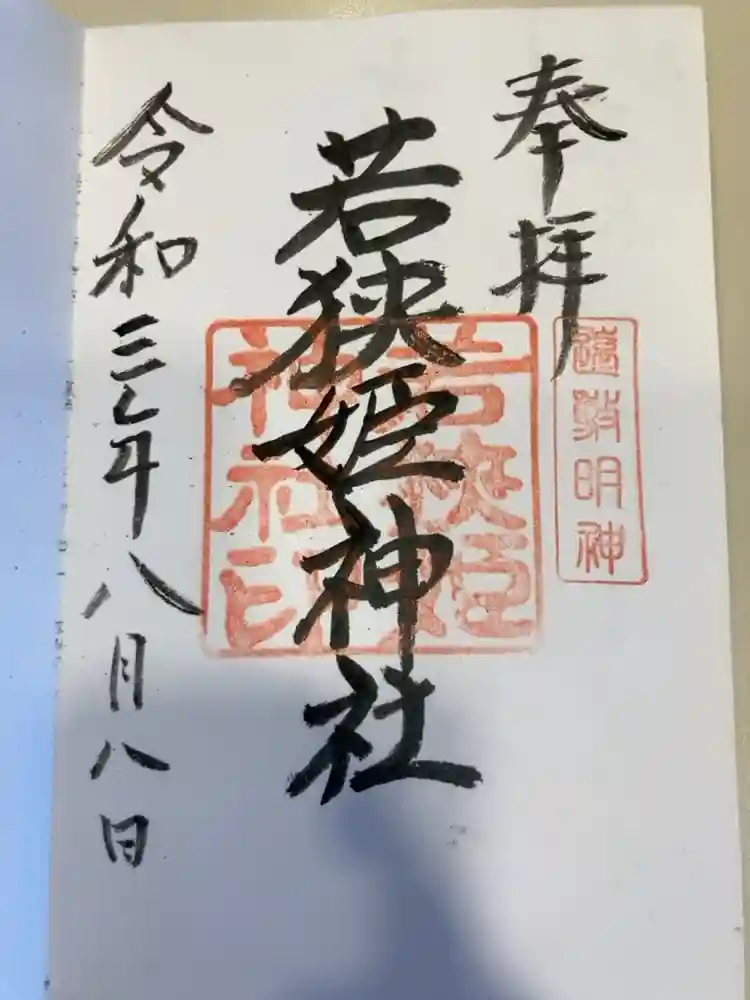 奉拝
遠敷明神
若狭姫神社
若狭姫神社印
令和三年八月八日